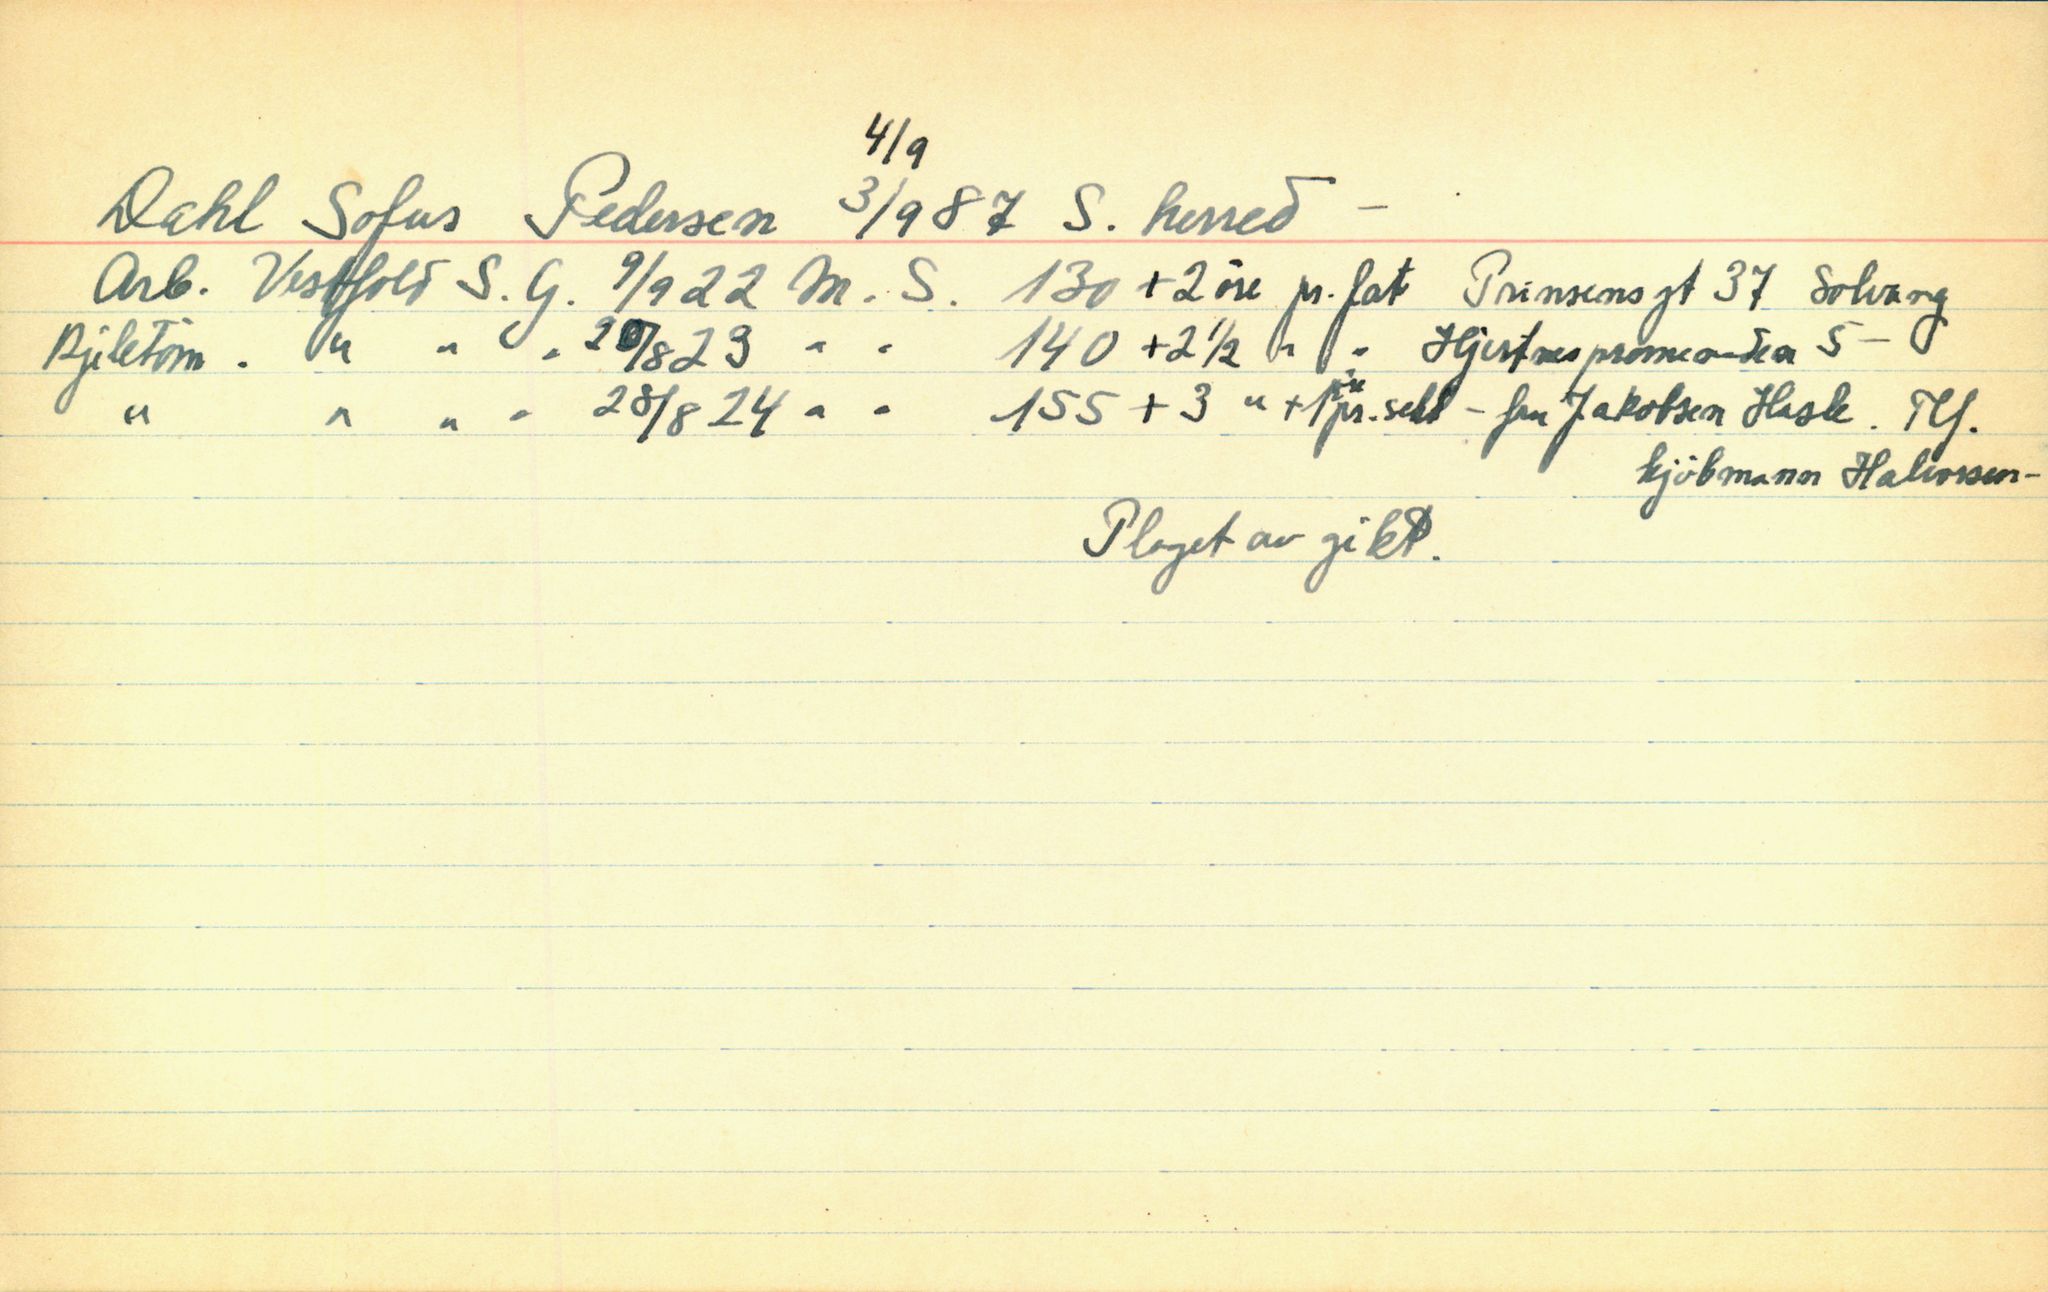 4/9
Dahl Sofus Pedersen 3/9 87 S. herred -
Arb. Vestfold S. G. 9/9 22 M. S. 130 + 2 öre pr. fat Prinsensgt 37 Solvang
Kjeletöm. " " " 20/8 23 " " 140 + 2 1/2 " " Hjertnespromenaden 5 -
" " " " 28/8 24 " " 155 + 3 " + 1 öre pr. sekk - fru Jakobsen Hasle. Tlf.
kjöbmann Halvorsen -
Plaget av gikt.